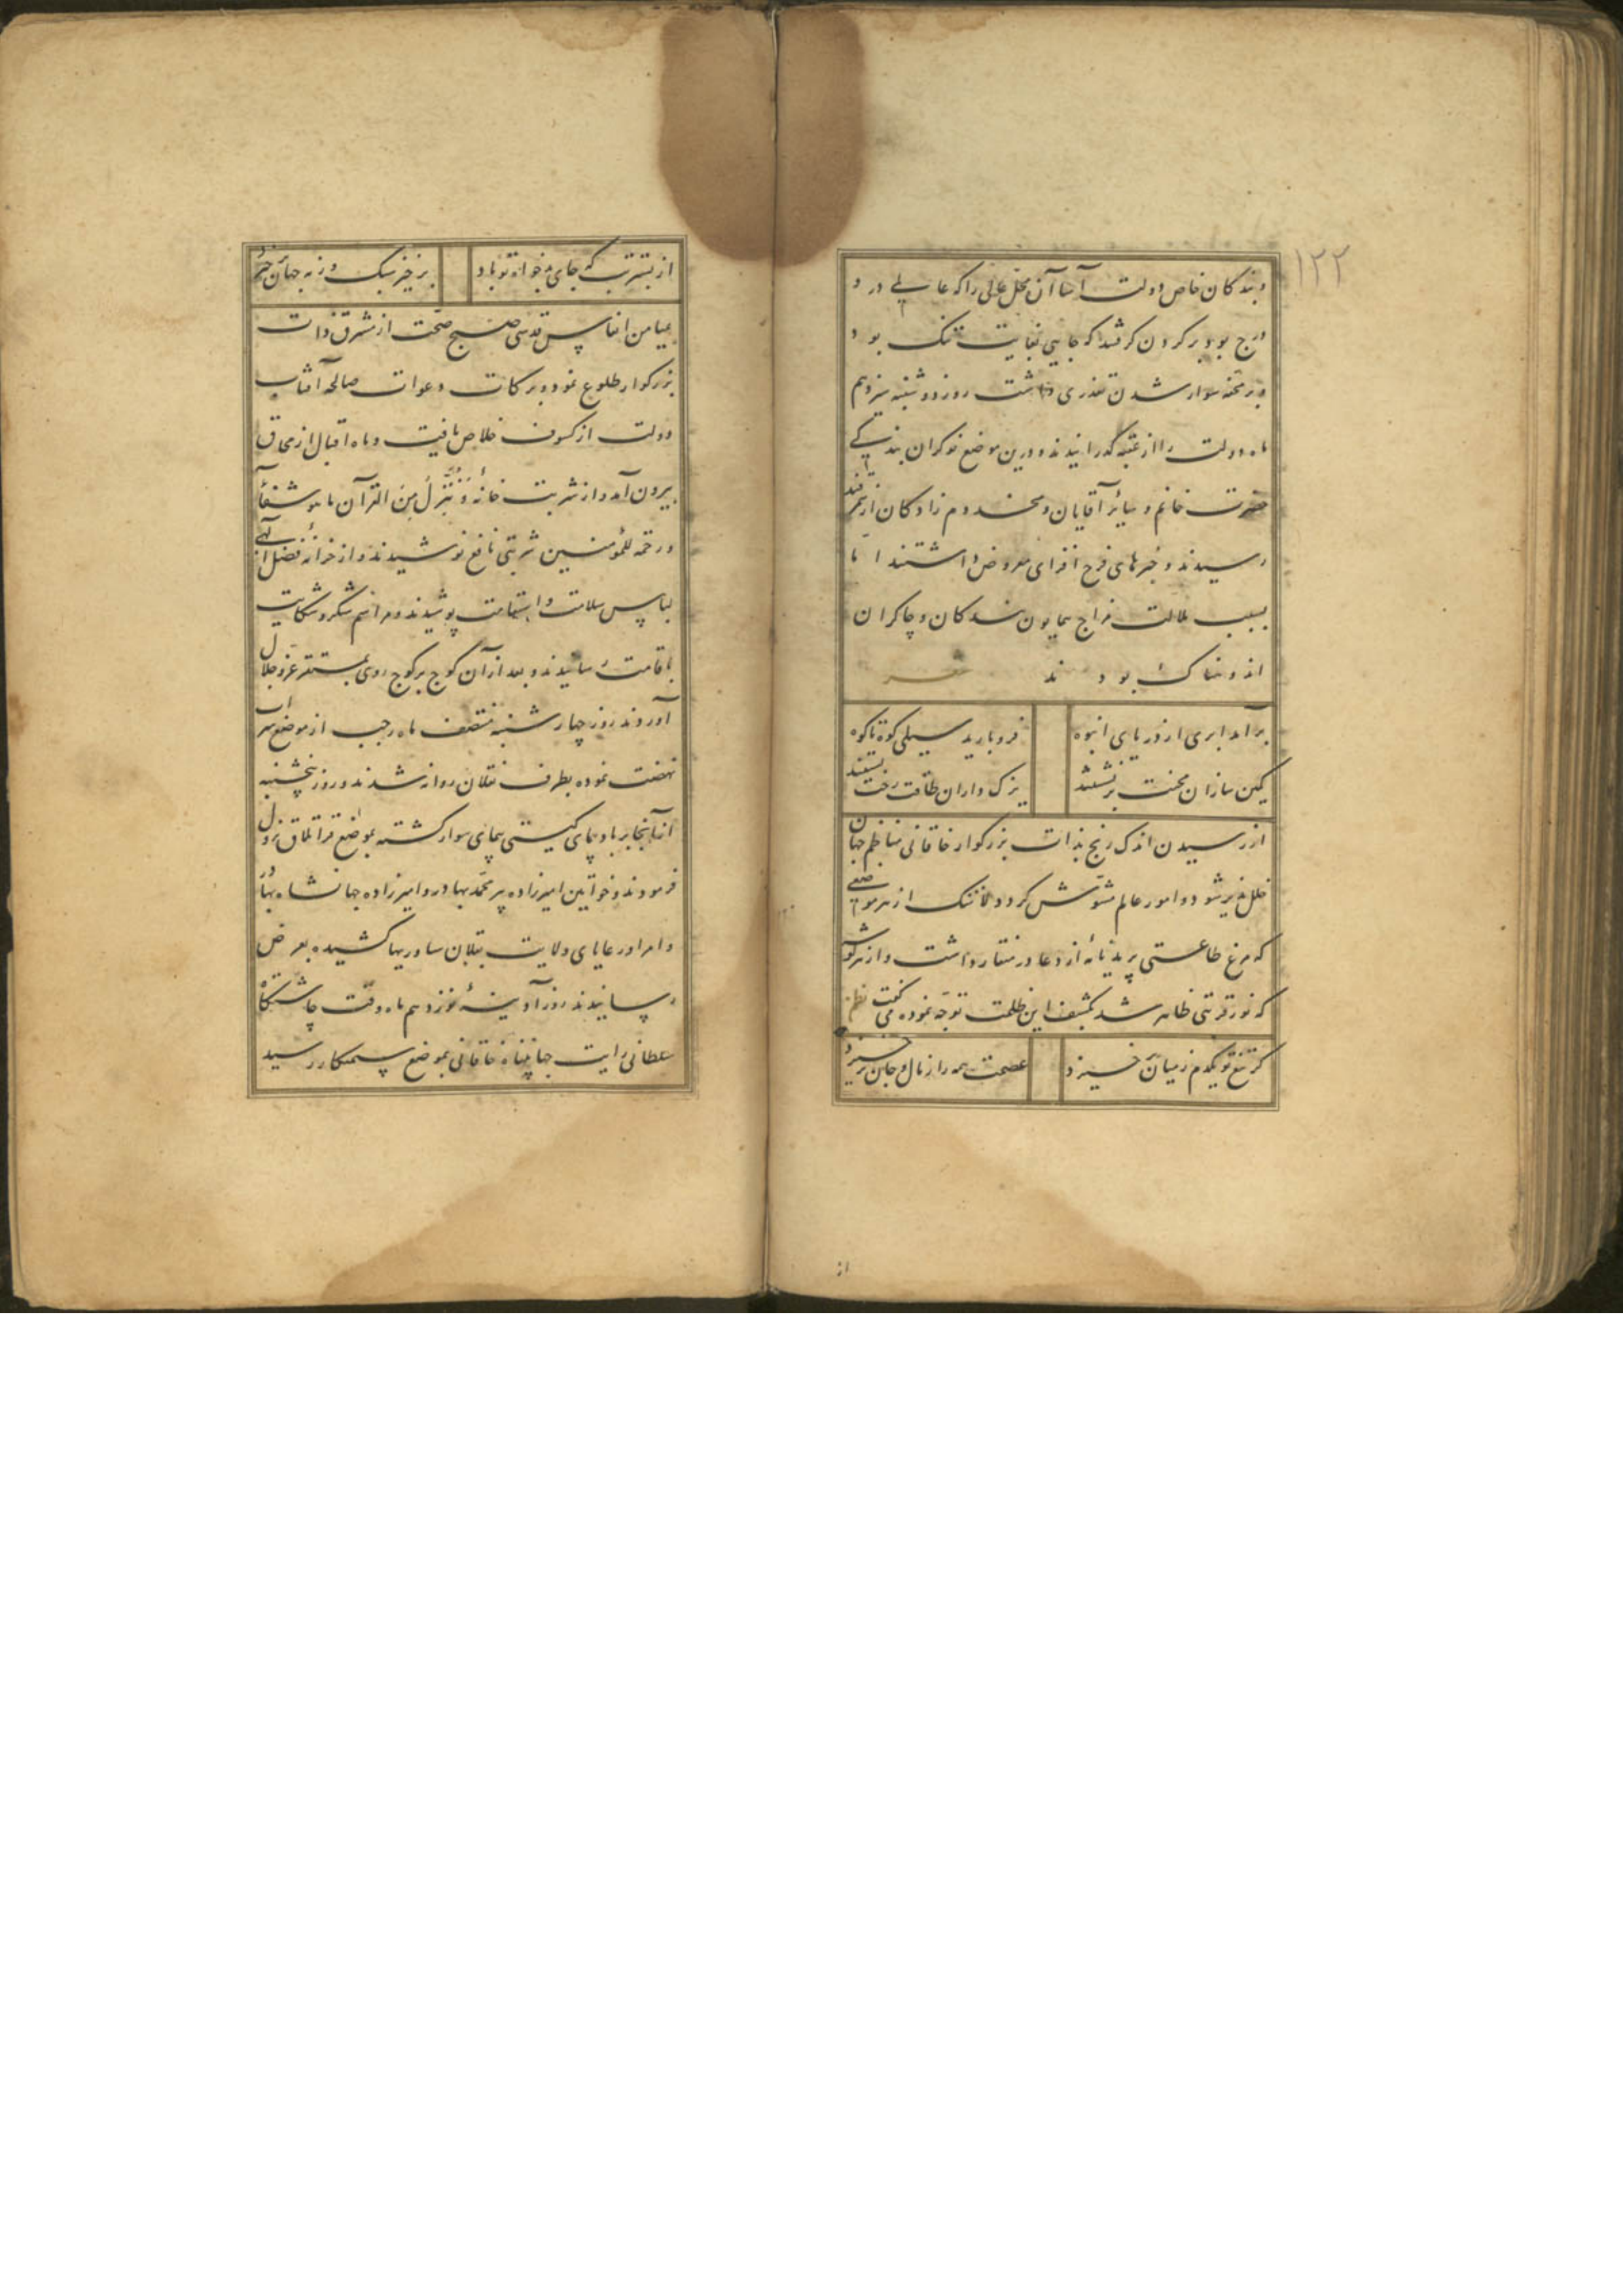 ۱۲۲
و بندکان خاص دولت آسا آن محل عالی را که عالمی در و
درج بود بر کردن کرفتند که جایی بغایت تنک بود و
در محفه سوار شدن تعذری داشت روز دوشنبه سیزدهم
ماه دولت را از عقبه گذرانیدند و درین موضع نوکران بندکی
حضرت خانم و سایر آقایان و مخدوم زادکان از سمرقند
رسیدند و خبرهای فرح افزای معروض داشتند اما
بسبب ملالت مزاج همایون بندکان و چاکران
اندوهناک بودند
برآمد ابری از دریای انبوه
فرو بارید سیلی کوه تا کوه
کمین سازان محنت برنشستند
یزک داران طاقت رخت بستند
از رسیدن اندک رنج بذات بزرکوار خاقانی مناظم جهان
خلل پذیر شود و امور عالم مشوش کردد از هر موضعی
که مرغ طاعتی پرید نامه از دعا در منقار داشت و از هر کوشه
که نور قربتی ظاهر شد بکشف این ظلمت توجه نموده می کفت نظم
کر تیغ تو یکدم ز میان خیزد
عصمت همه را ز مال و جان برخیزد
از
از بسترت که جای بدخواه تو باد
برخیز سبک ورنه جهان برخیزد
بمیامن انفاس قدسی صبح صحت از مشرق ذات
بزرکوار طلوع نمود و ببرکات دعوات صالحه آفتاب
دولت از کسوف خلاص یافت و ماه اقبال از محاق
بیرون آمد و از شربت خانهٔ وَنُنَزِّلُ مِنَ القرآن ما هو شفآء
ورحمة للمؤمنین شربتی نافع نوشیدند و از خزانهٔ فضل الهی
لباس سلامت و استقامت پوشیدند و مراسم شکر و شکایت
باقامت رسانیدند و بعد از آن کوچ بر کوچ روی بمستقر عز و جلال
آوردند روز چهارشنبه منتصف ماه رجب از موضع سراب
نهضت نموده بطرف نقلان روانه شدند و روز پنجشنبه
از آنجا بر بادپای کیتی پیمای سوار کشته بموضع قراتلاق نزول
فرمودند و خواتین امیرزاده پیر محمد بهادر و امیرزاده جهانشاه بهادر
و امرا و رعایای ولایت بقلان ساوریها کشیده بعرض
رسانیدند روز آدینهٔ نوزدهم ماه وقت چاشتکاه
سلطانی رایت جهانپناه خاقانی بموضع سمنکار رسید